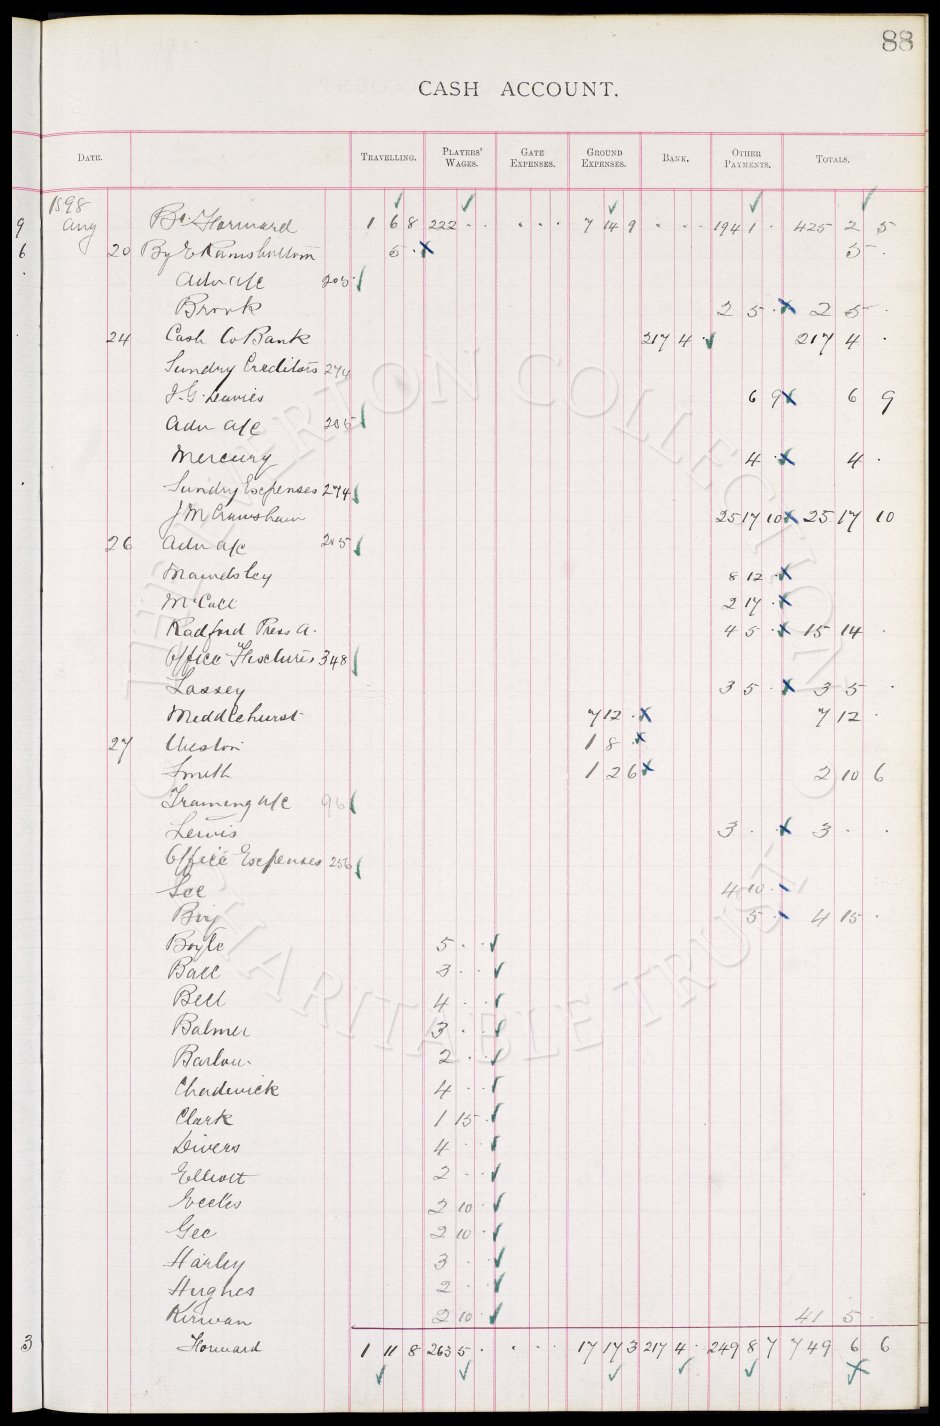 88
CASH ACCOUNT.
DATE. TRAVELLING. PLAYERS' WAGES. GATE EXPENSES. GROUND EXPENSES. BANK. OTHER PAYMENTS. TOTALS.
1898
9 Aug Bt. Forward 1 6 8 222 . . . . . 7 14 9 . . . 194 1 . 425 2 5
6 20 By E Ramsbottom 5 . 5 .
Adv a/c 205
Brook 2 5 . 2 5 .
24 Cash Co Bank 217 4 . 217 4 .
Sundry Creditors 274
J. G. Davies 6 9 6 9
Adv a/c 205
Mercury 4 . 4 .
Sundry Expenses 274
J M Crawshaw 25 17 10 25 17 10
26 Adv a/c 205
Mawdsley 8 12 .
McCall 2 17 .
Radford Press a. 4 5 . 15 14 .
Office Fixtures 348
Lassey 3 5 . 3 5 .
Middlehurst 7 12 . 7 12 .
27 Weston 1 8 .
Smith 1 2 6 2 10 6
Training a/c 96
Lewis 3 . . 3 . .
Office Expenses 256
Gee 4 10 .
5 . 4 15 .
Boyle 5 . .
Ball 3 . .
Bell 4 . .
Balmer 3 . .
Barlow 2 . .
Chadwick 4 . .
Clark 1 15 .
Divers 4 . .
Elliott 2 . .
Eccles 2 10 .
Gee 2 10 .
Harley 3 . .
Hughes 2 . .
Kirwan 2 10 . 41 5 .
3 Forward 1 11 8 263 5 . . . . 17 17 3 217 4 . 249 8 7 749 6 6
THE EVERTON COLLECTION
CHARITABLE TRUST